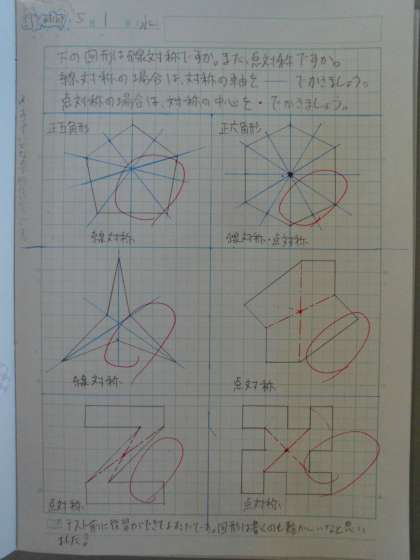 5 1
下の図形は線対称ですか。また、点対称ですか。
線対称の場合は、対称の軸を ― でかきましょう。
点対称の場合は、対称の中心を・でかきましょう。
正五角形
正六角形
線対称
線対称・点対称
線対称
点対称
点対称
点対称
テスト前に復習ができてよかったです。図形は書くのも難かしいなと思い
ました。